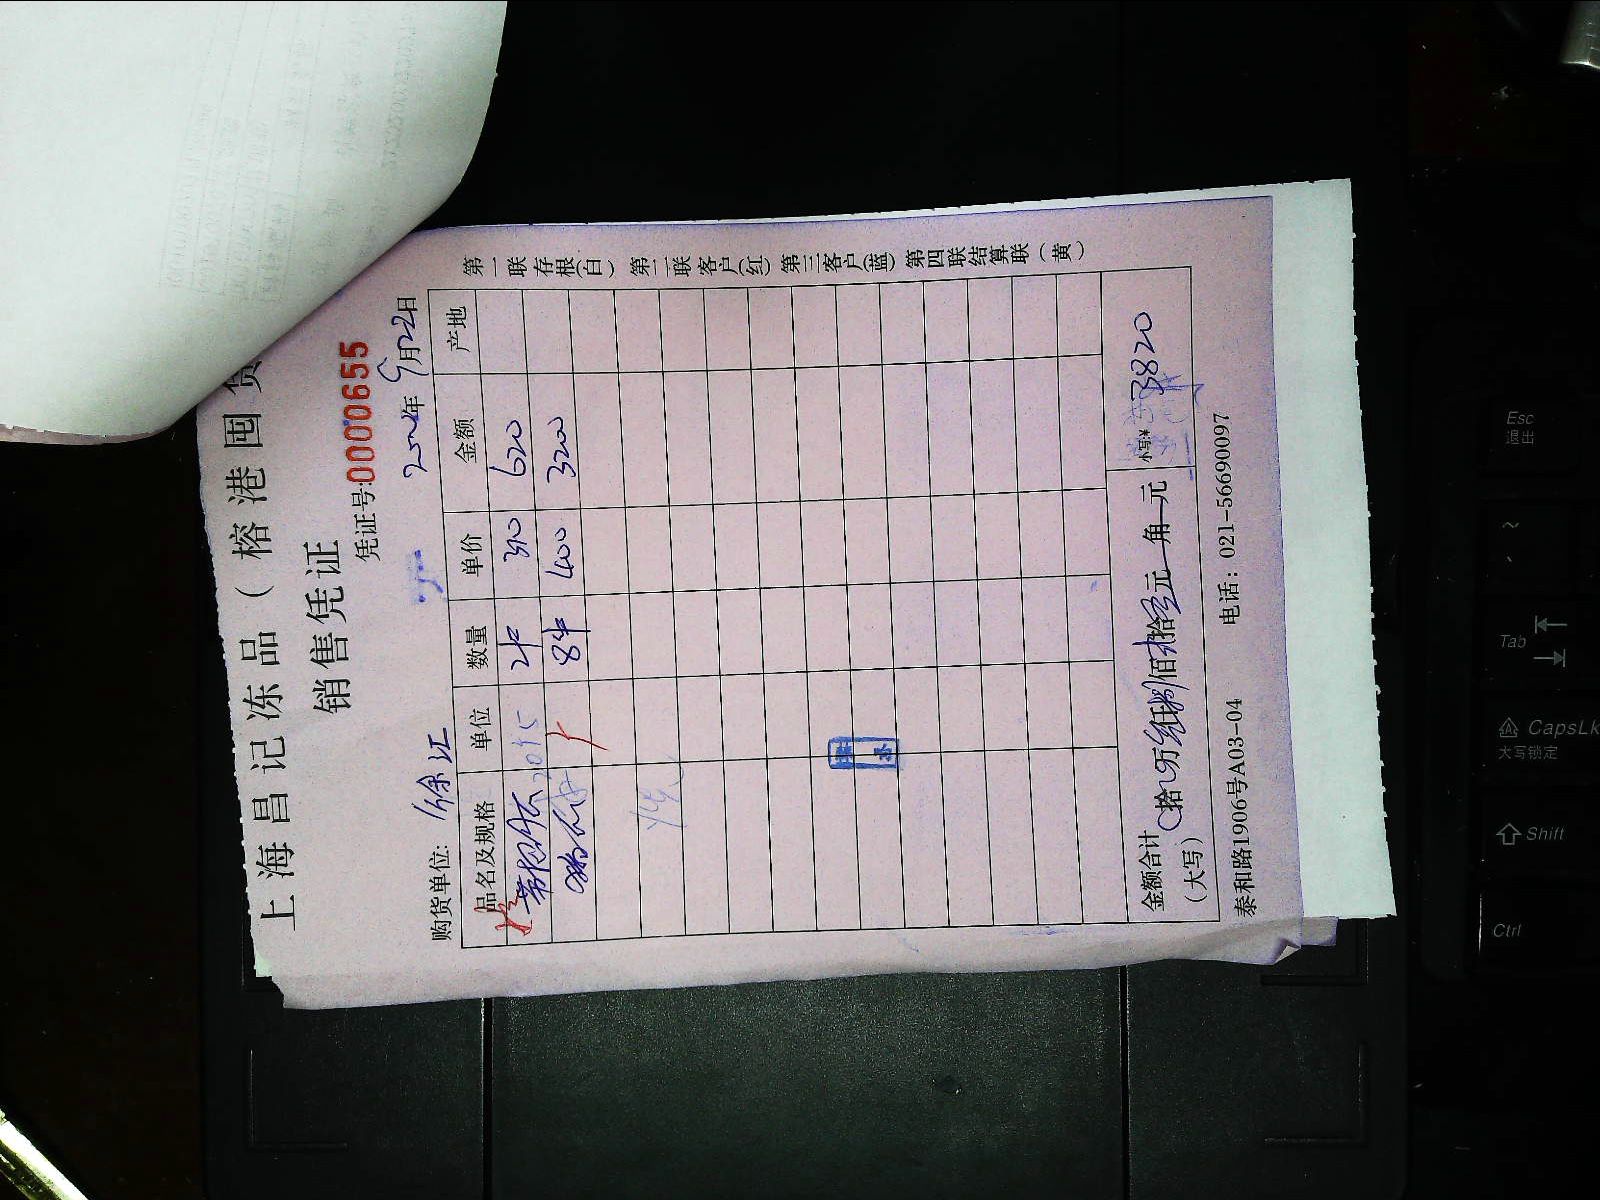 上海昌记冻品（榕港囤货
销售凭证
凭证号:0000655
购货单位: 徐江 年9月22日
品名及规格 单位 数量 单价 金额 产地
2件 310 620
8件 400 3200
金额合计（大写） 拾 万 仟捌佰 拾 元 角 元 小写:¥ 3820
泰和路1906号A03-04 电话：021-56690097
第一联存根(白) 第二联客户(红) 第三客户(蓝) 第四联结算联（黄）
Esc
退出
Tab
CapsLk
大写锁定
Shift
Ctrl